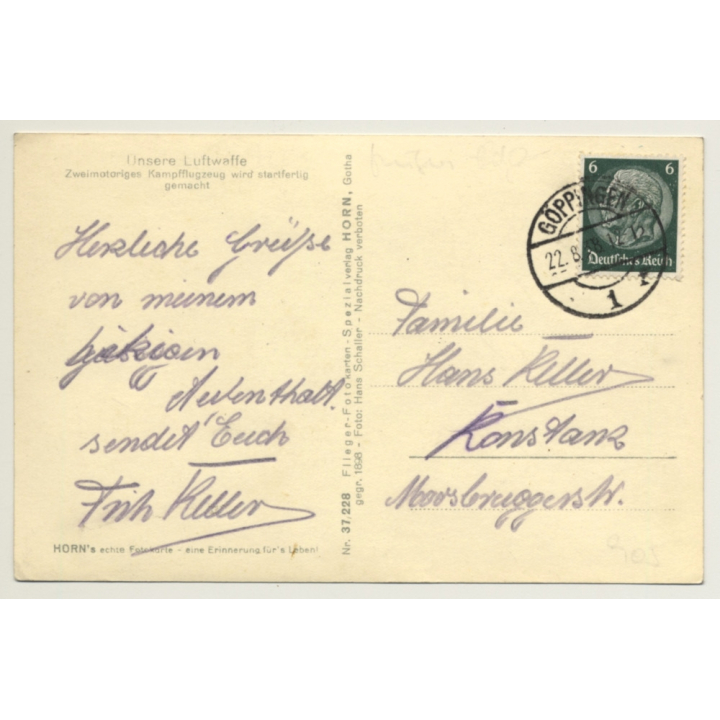 Unsere Luftwaffe
Zweimotoriges Kampfflugzeug wird startfertig
gemacht
Herzliche Grüße
von meinem
Aufenthalt
sendet Euch
Fritz Keller
HORN's echte Fotokarte - eine Erinnerung für's Leben!
Nr. 37,228 Flieger-Fotokarten-Spezialverlag HORN, Gotha
gegr. 1898 - Foto: Hans Schaller - Nachdruck verboten
6 6
Deutsches Reich
GÖPPINGEN
22.8.
1
Familie
Hans Keller
Konstanz
Marsbruggerstr.